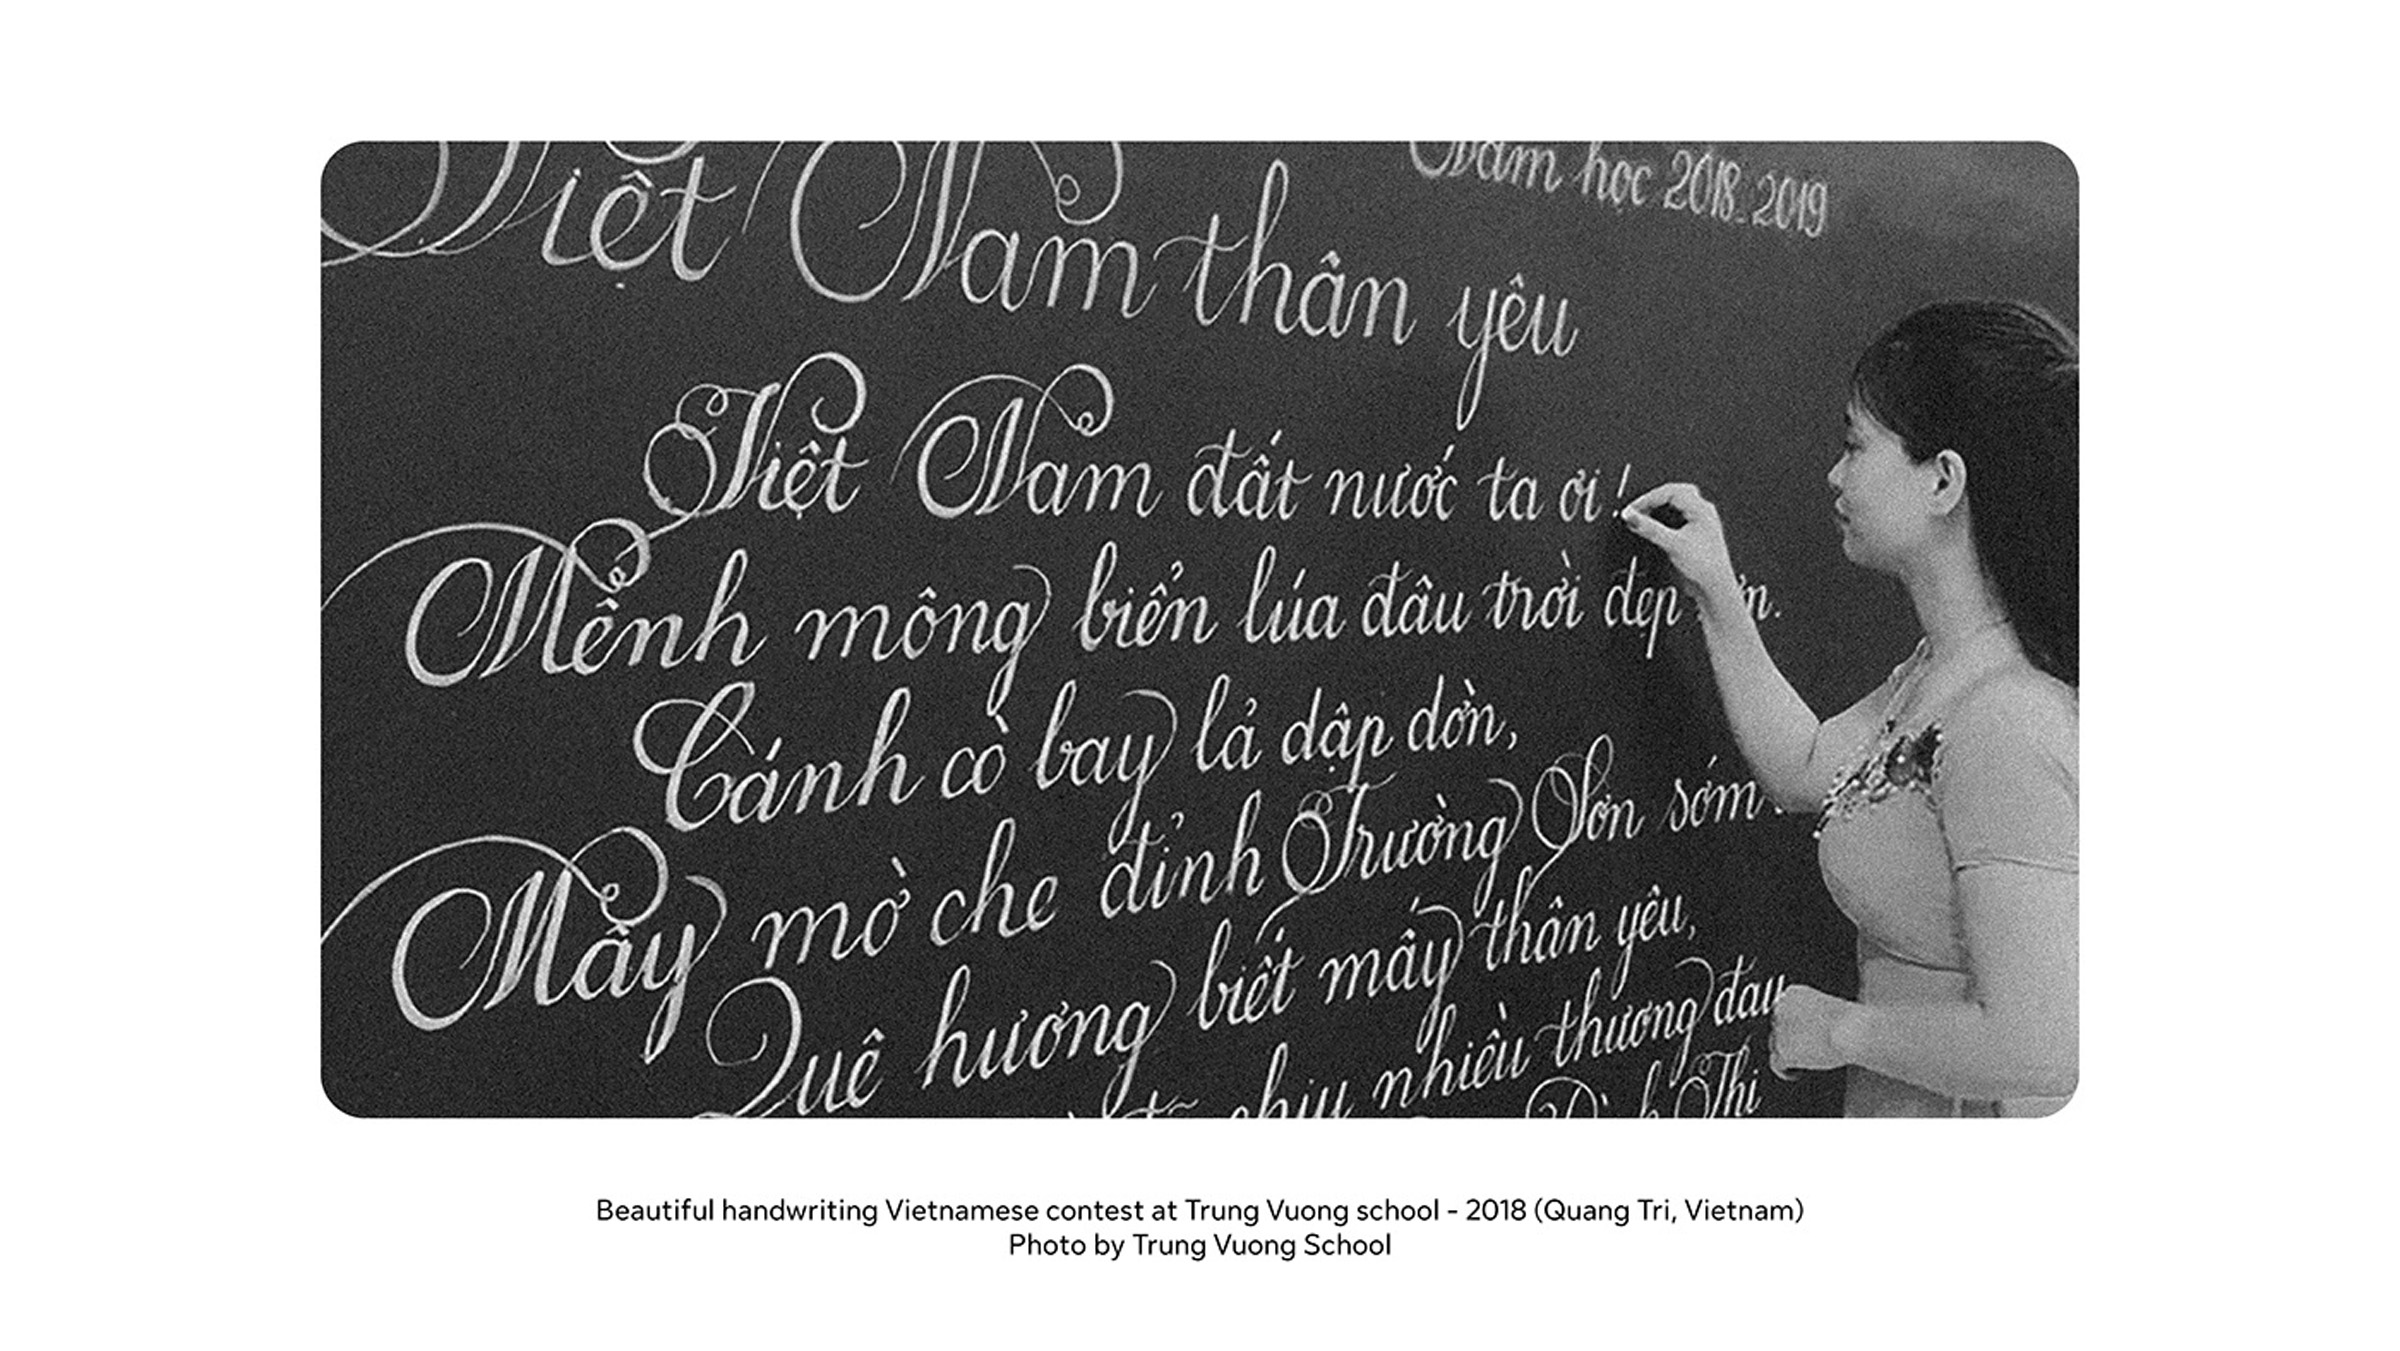 Năm học 2018-2019
Việt Nam thân yêu
Việt Nam đất nước ta ơi!
Mênh mông biển lúa đâu trời đẹp
Cánh cò bay lả dập dờn,
Mây mờ che đỉnh Trường Sơn sớm
Quê hương biết mấy thân yêu,
chịu nhiều thương đau
Thi
Beautiful handwriting Vietnamese contest at Trung Vuong school - 2018 (Quang Tri, Vietnam)
Photo by Trung Vuong School